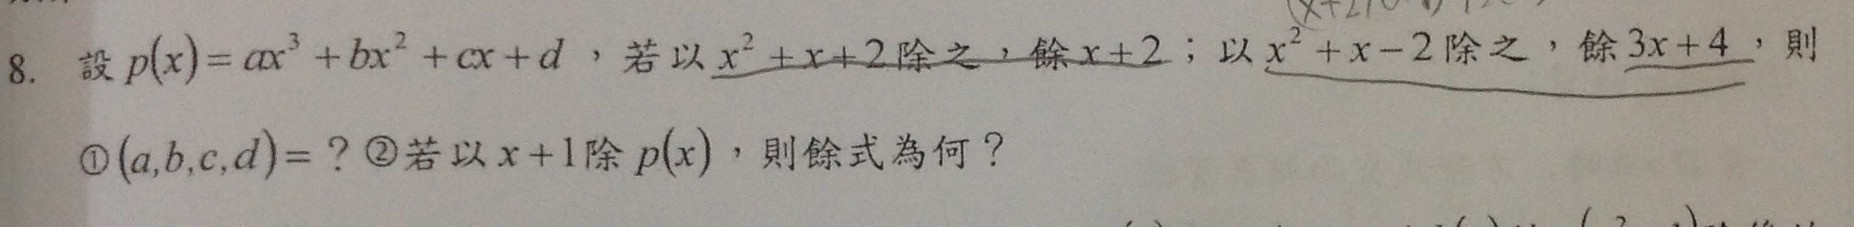 8. 設 p(x) = ax³ + bx² + cx + d，若以 x² + x + 2 除之，餘 x + 2；以 x² + x − 2 除之，餘 3x + 4，則
①(a,b,c,d) = ？②若以 x + 1 除 p(x)，則餘式為何？